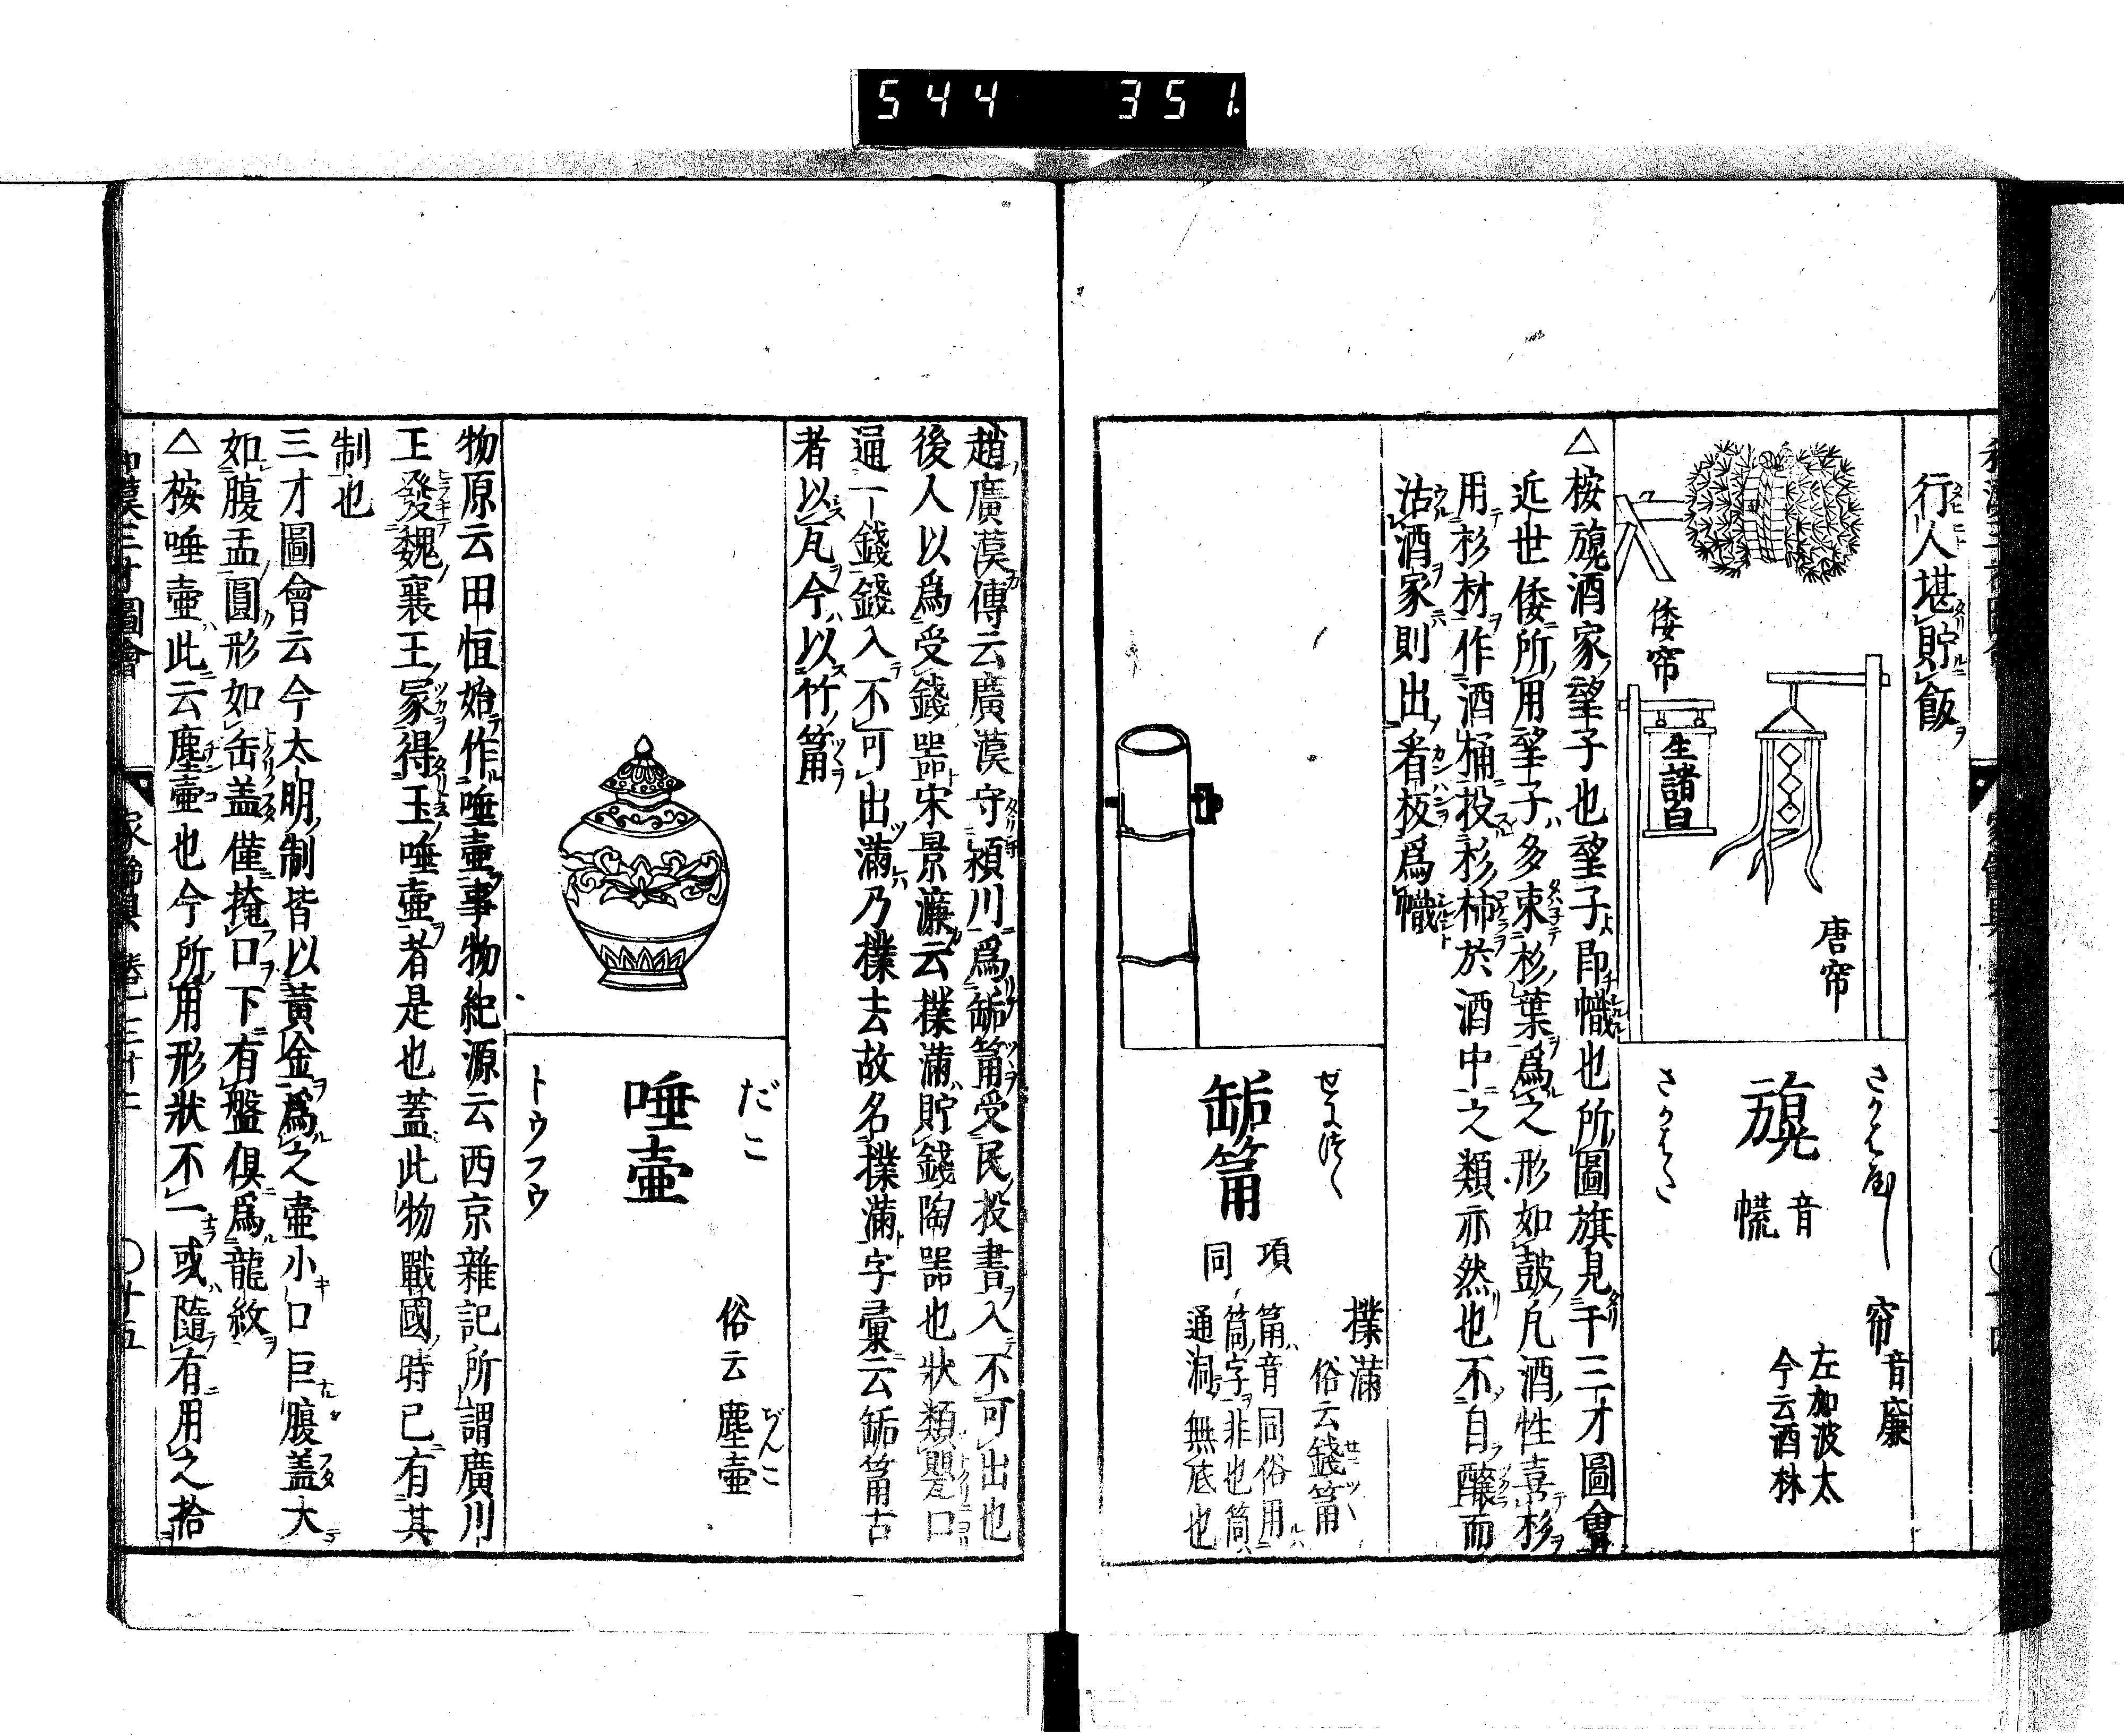 544 351
行人堪貯飯
倭帘
生諸白
唐帘
帘音廉
左加波太
今云酒林
音
幌
△按旐酒家望子也望子即幟也所圖旗見于三才圖會
近世倭所用望子多束杉葉爲之形如鼓凡酒性喜杉
用杉材作酒桶投杉柹於酒中之類亦然也不自釀而
沽酒家則出看板爲幟
撲滿
俗云錢筩
缿筩
項
同
筩音同俗用
筒字非也筒
通洞無底也
趙廣漢傳云廣漢守潁川爲缿筩受民投書入不可出也
後人以爲受錢器宋景濂云撲滿貯錢陶器也狀類罌口
通一錢錢入不可出滿乃撲去故名撲滿字彙云缿筩古
者以瓦今以竹筩
だこ
唾壷
トウフウ
俗云塵壷
ぢんこ
物原云田恒始作唾壷事物紀源云西京雜記所謂廣川
王發魏襄王冢得玉唾壷者是也蓋此物戰國時已有其
制也
三才圖會云今太明制皆以黃金爲之壷小口巨腹盖大
如腹盂圓形如缶盖僅掩口下有盤俱爲龍紋
△按唾壷此云塵壷也今所用形狀不一或隨有用之拾